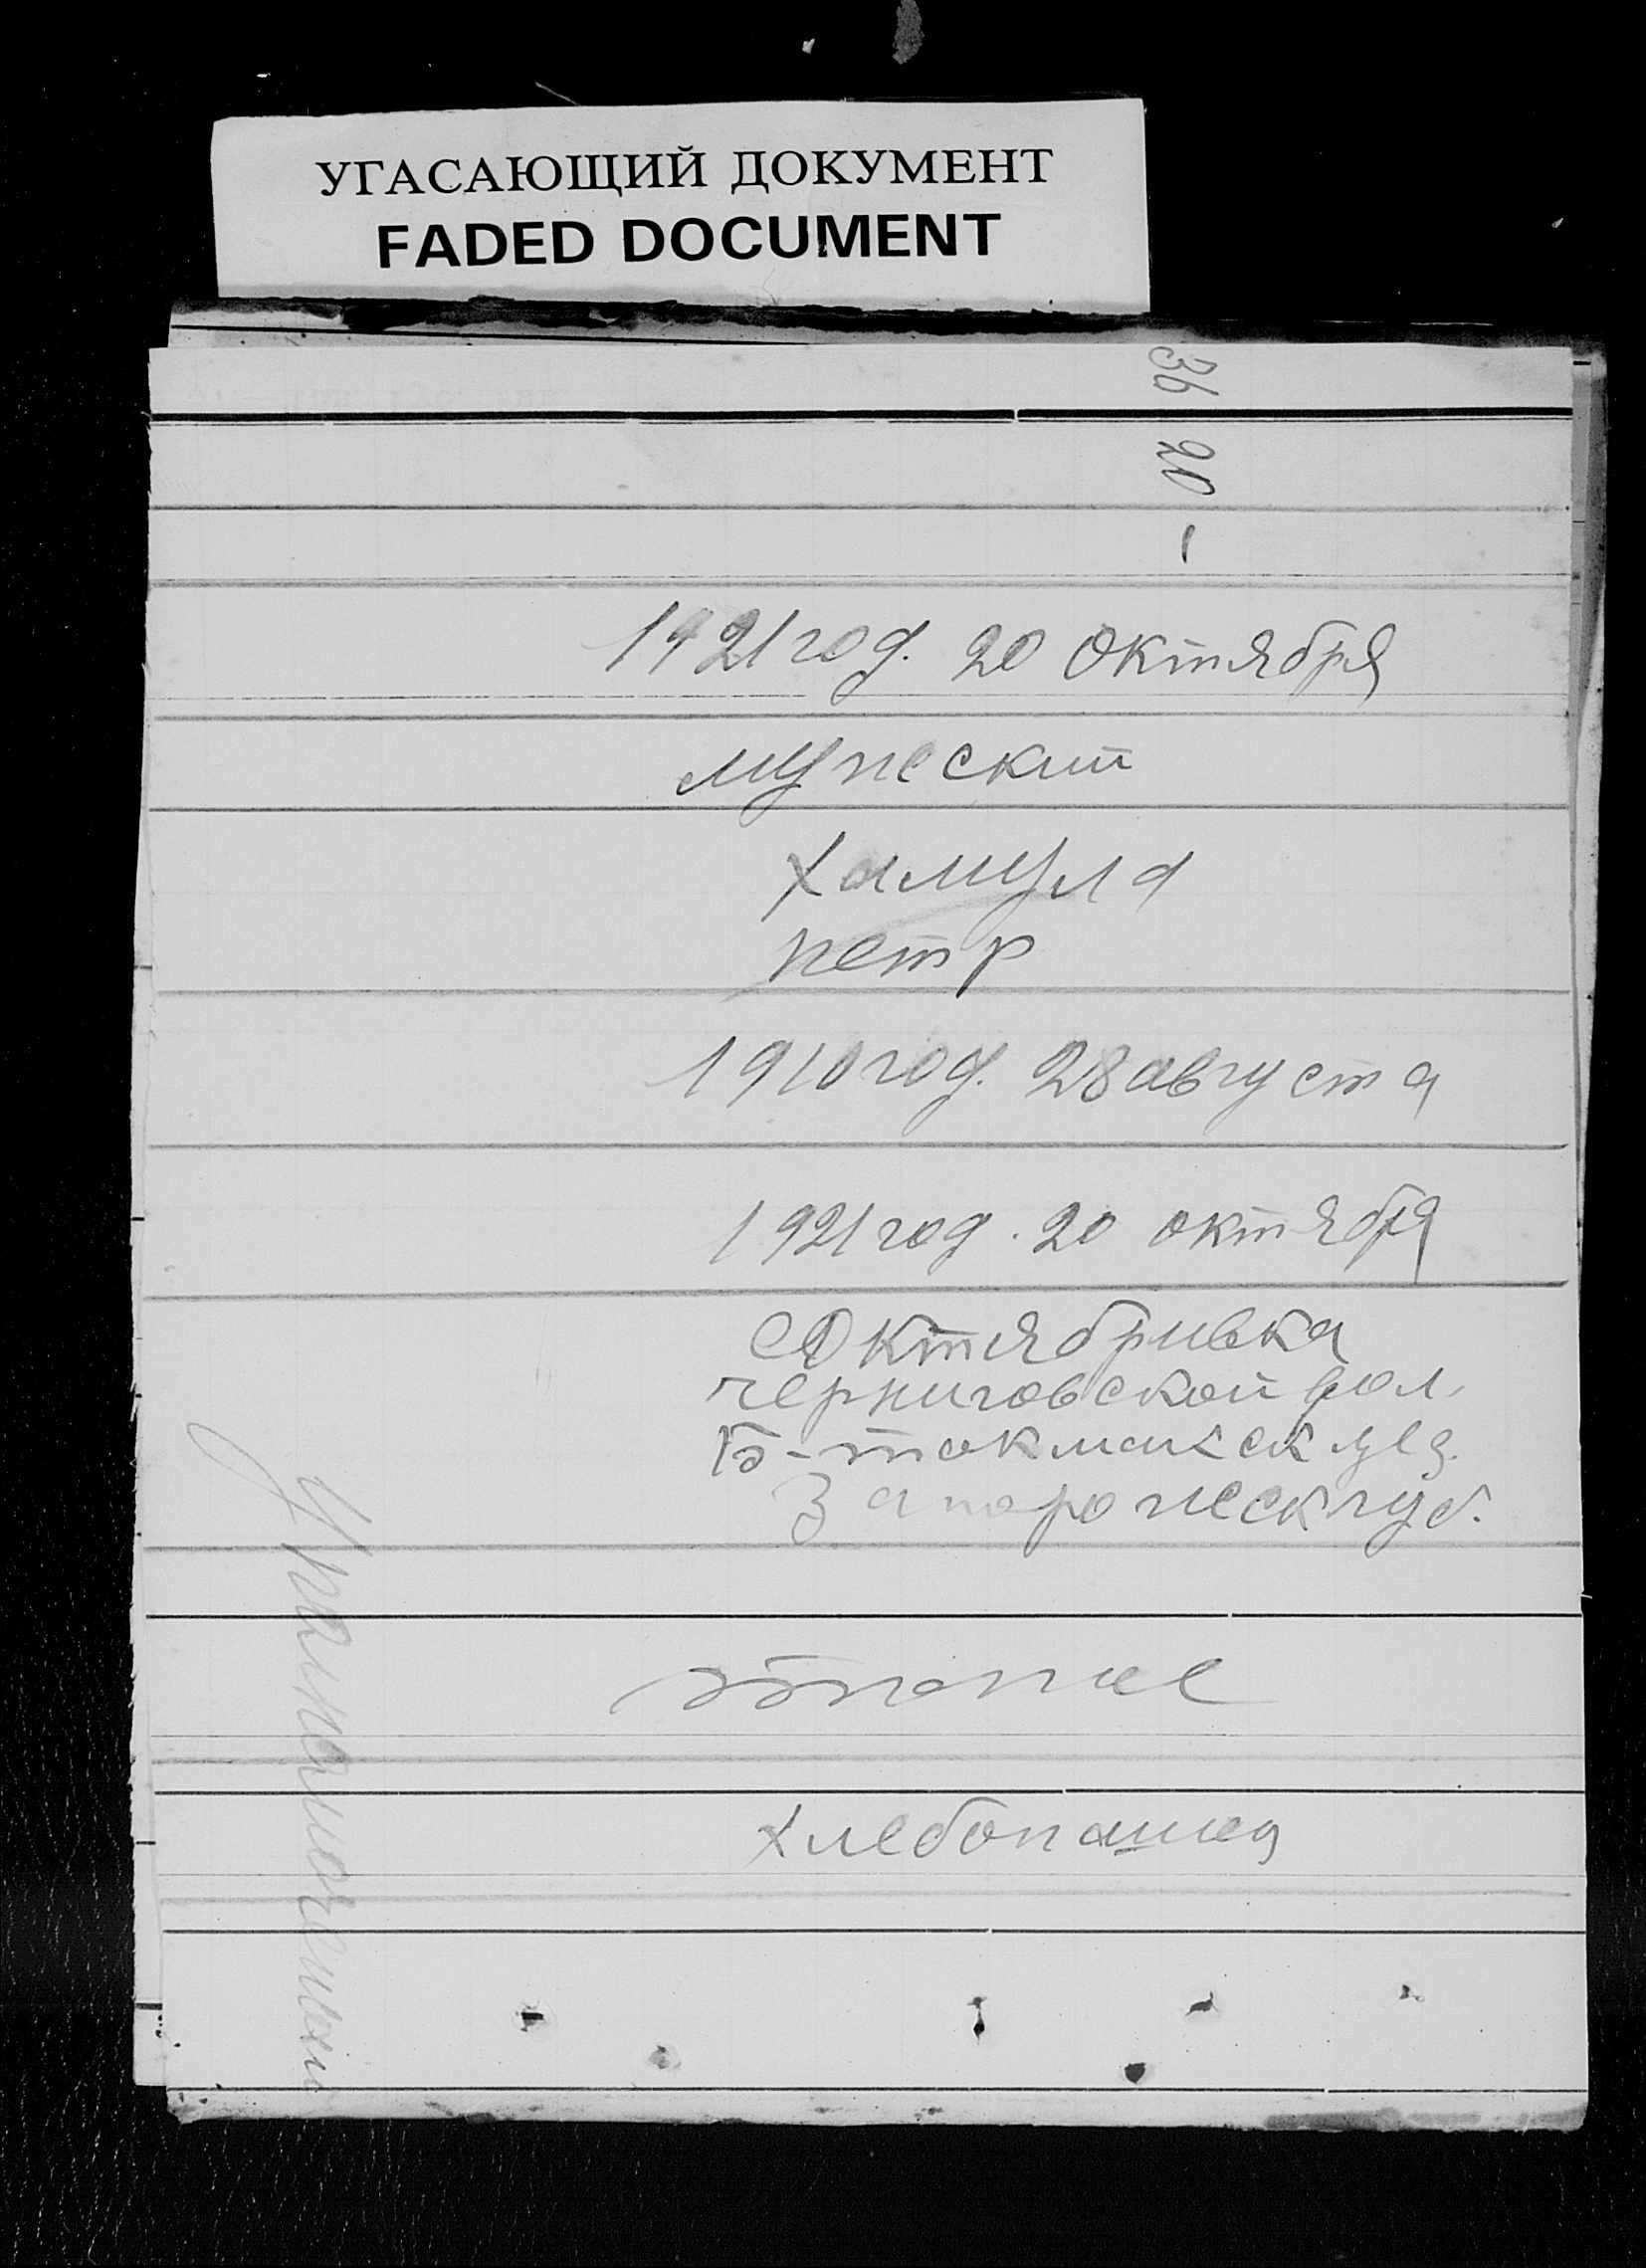 УГАСАЮЩИЙ ДОКУМЕНТ
FADED DOCUMENT
36 20 -
1921 год. 20 Октября
мужеский
Хамула
петр
1910 год. 28 августа
1921 год. 20 октября
Октябривка
черниговской вол.
Б-токмакск уез.
Запорожеск губ.
тоже
хлебопашец